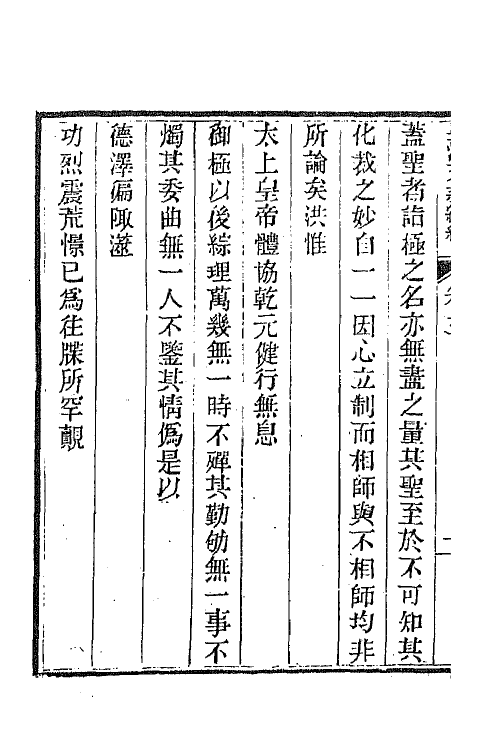 蓋聖者詣極之名亦無盡之量其聖至於不可知其
化裁之妙自一一因心立制而相師與不相師均非
所論矣洪惟
太上皇帝體協乾元健行無息
御極以後綜理萬幾無一時不殫其勤劬無一事不
燭其委曲無一人不鑒其情僞是以
德澤徧陬澨
功烈震荒憬已爲往牒所罕覯